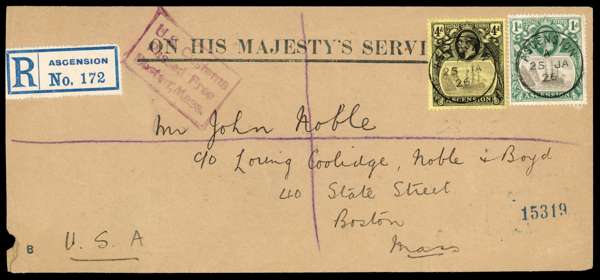 ON HIS MAJESTY'S SERVI
R ASCENSION
No. 172
U.S. Customs
Passed Free
Boston, Mass.
4d 4d
ASCENSION
ASCENSION
25 JA
26
1d 1d
ASCENSION
ASCENSION
25 JA
26
Mr John Noble
c/o Loring Coolidge, Noble & Boyd
40 State Street
Boston
Mass
15319
8
U.S.A